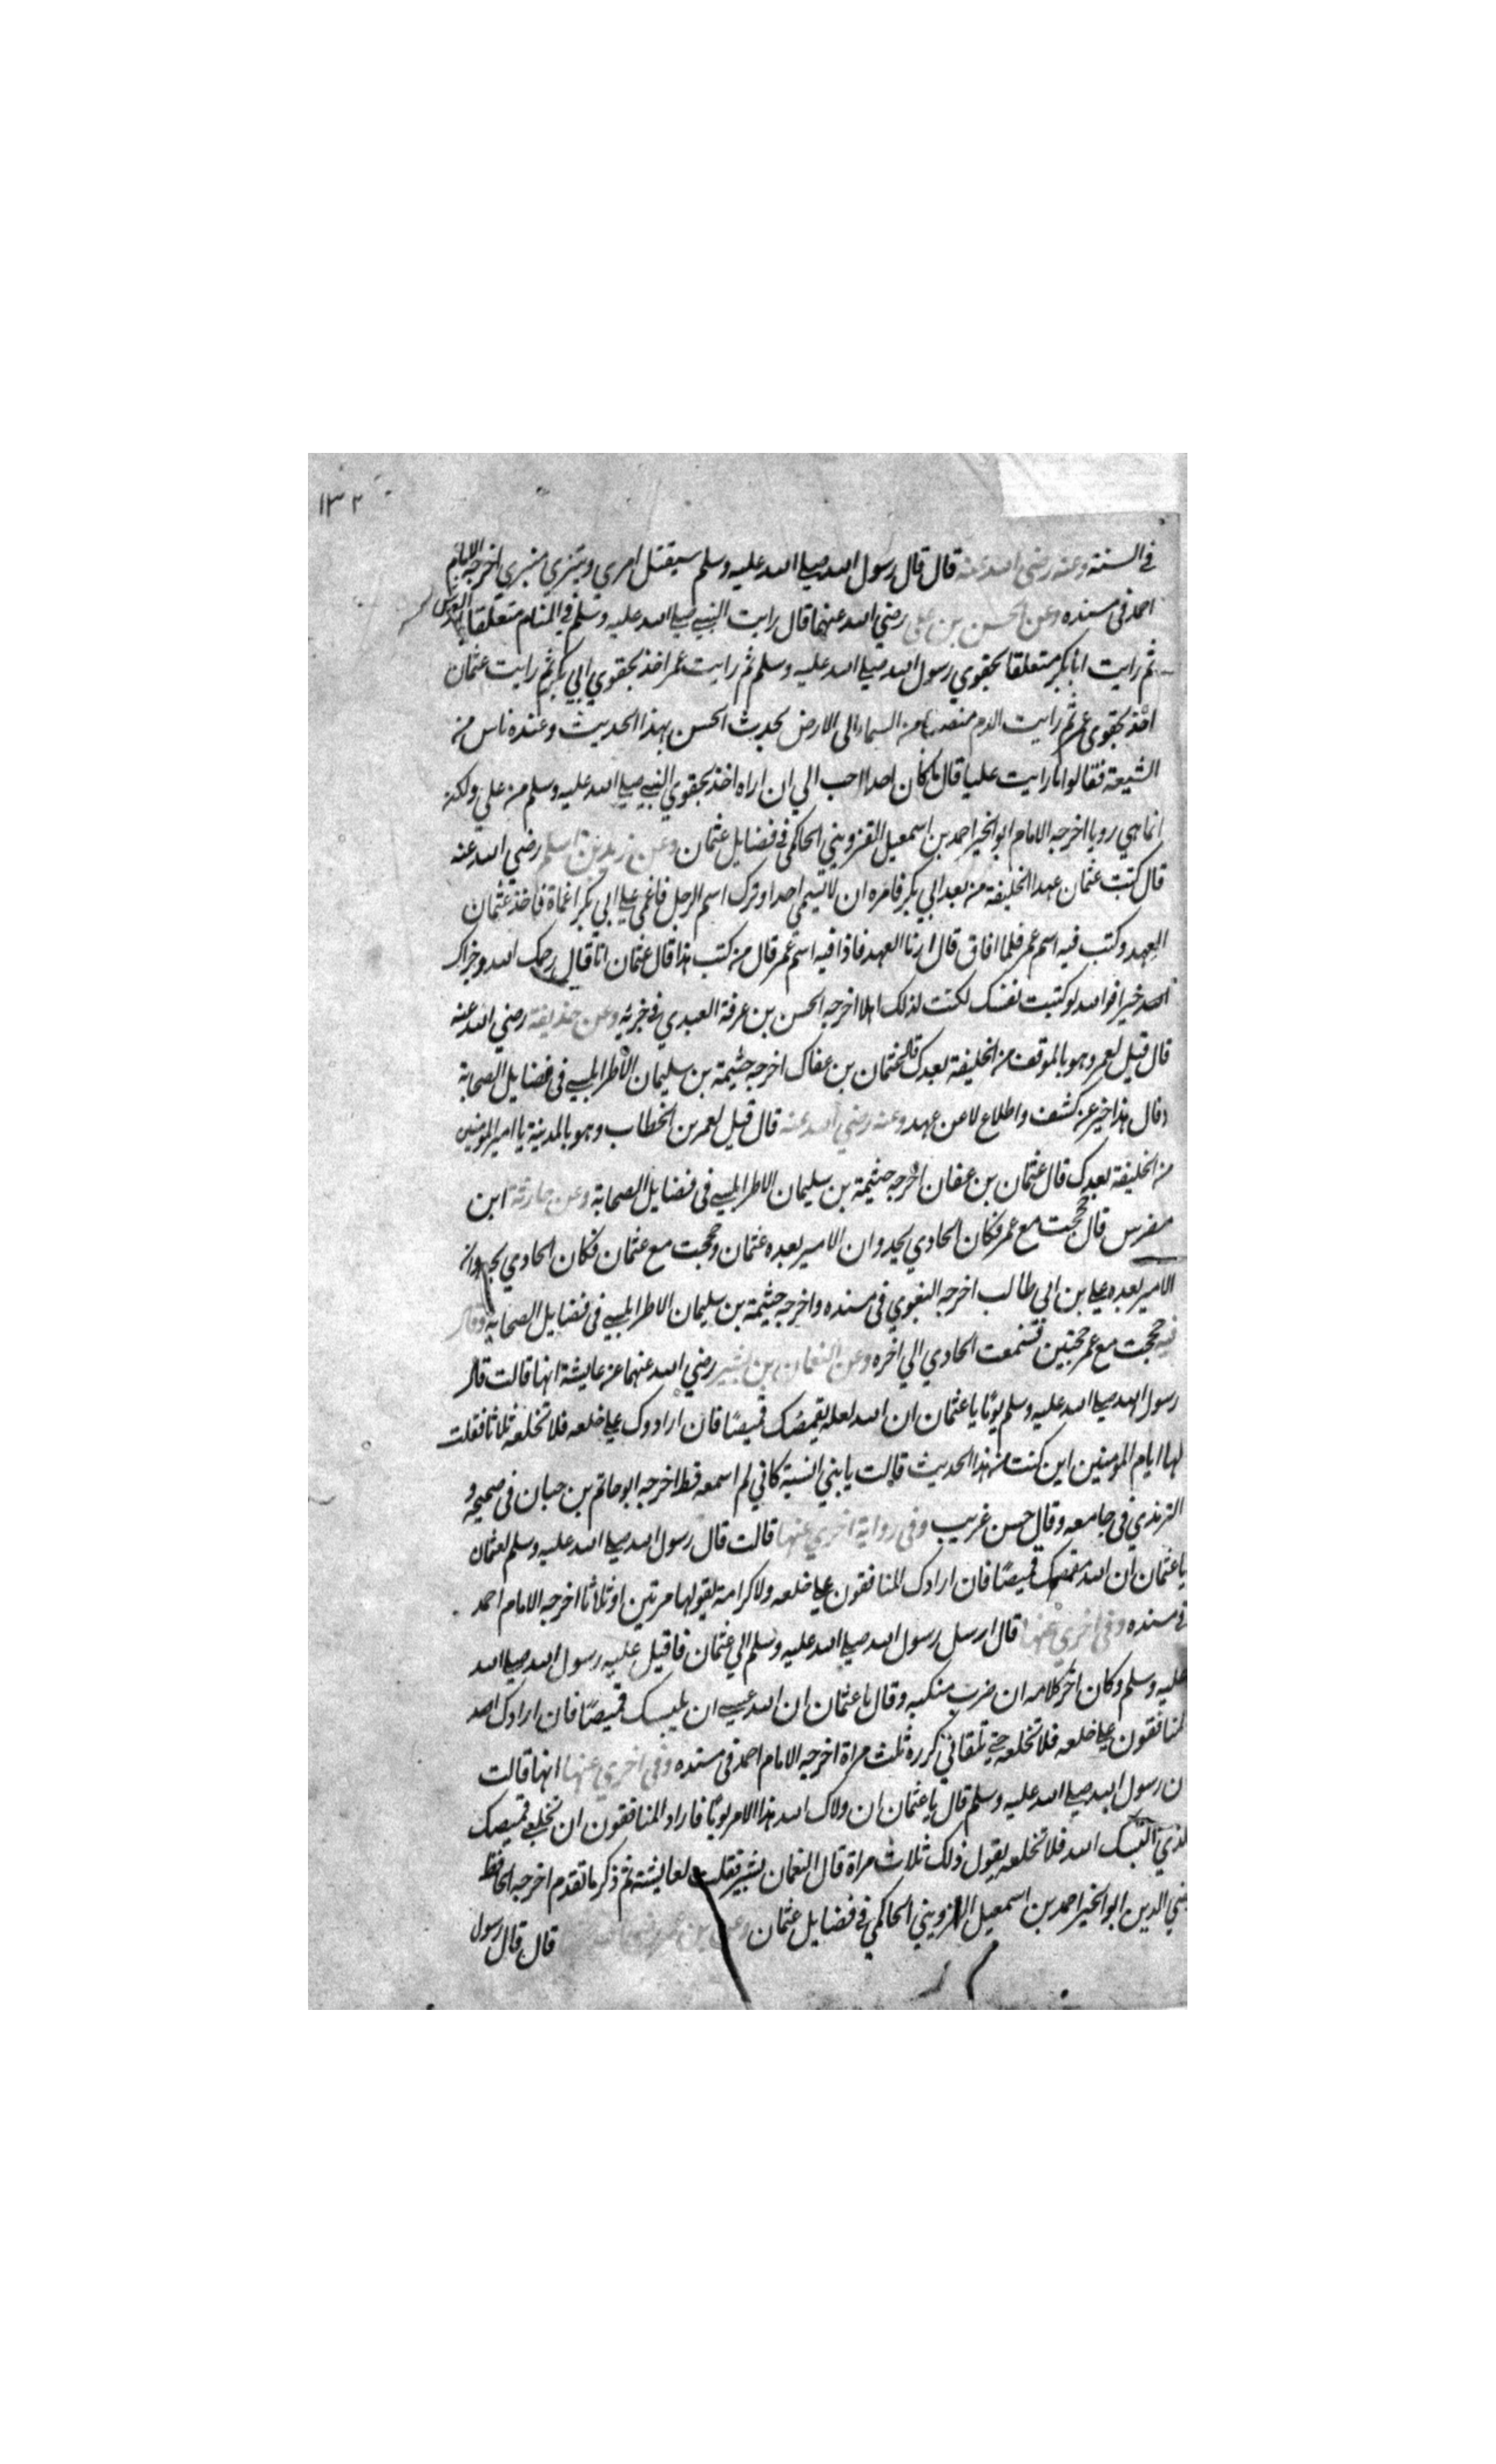 ١٣٢
في السنة وعنه رضي الله عنه قال قال رسول الله صلى الله عليه وسلم سيقتل اميري وينتزي منبري اخرجه الامام
احمد في مسنده وعن الحسن بن علي رضي الله عنهما قال رايت النبي صلى الله عليه وسلم في المنام متعلقا بالعرش
ثم رايت ابا بكر متعلقا بحقوي رسول الله صلى الله عليه وسلم ثم رايت عمر اخذ بحقوي ابي بكر ثم رايت عثمان
اخذ بحقوي عمر ثم رايت الدم منصبا من السماء الى الارض يحدث الحسن بهذا الحديث وعنده ناس من
الشيعة فقالوا ما رايت عليا قال ما كان احدا احب الي ان اراه اخذ بحقوي النبي صلى الله عليه وسلم من علي ولكن
انما هي رويا اخرجه الامام ابو الخير احمد بن اسمعيل القزويني الحاكمي في فضايل عثمان وعن زيد بن اسلم رضي الله عنه
قال كتب عثمان عهد الخليفة من بعد ابي بكر فامره ان لا يسمي احدا وترك اسم الرجل فاغمي على ابي بكر اغماة فاخذ عثمان
العهد وكتب فيه اسم عمر فلما افاق قال ارنا العهد فاذا فيه اسم عمر قال من كتب هذا قال عثمان انا قال رحمك الله وجزاك
الله خيرا فوالله لو كتبت نفسك لكنت لذلك اهلا اخرجه الحسن بن عرفة العبدي في جزئه وعن حذيفة رضي الله عنه
قال قيل لعمر وهو بالموقف من الخليفة بعدك قال عثمان بن عفان اخرجه خثيمة بن سليمان الاطرابلسي في فضايل الصحابة
وقال هذا خبر عن كشف واطلاع لا عن عهد وعنه رضي الله عنه قال قيل لعمر بن الخطاب وهو بالمدينة يا امير المومنين
من الخليفة بعدك قال عثمان بن عفان اخرجه خثيمة بن سليمان الاطرابلسي في فضايل الصحابة وعن حارثة ابن
مضرس قال حججت مع عمر فكان الحادي يحدو ان الامير بعده عثمان وحججت مع عثمان فكان الحادي يحدو ان
الامير بعده علي بن ابي طالب اخرجه البغوي في مسنده واخرجه خثيمة بن سليمان الاطرابلسي في فضايل الصحابة وقال
فيه حججت مع عمر حجتين فسمعت الحادي الى اخره وعن النعمان بن بشير رضي الله عنهما عن عايشة انها قالت قال
رسول الله صلى الله عليه وسلم يومًا يا عثمان ان الله لعله يقمصك قميصًا فان ارادوك على خلعه فلا تخلعه ثلاثا فقلت
لها يا ام المومنين اين كنت من هذا الحديث قالت يا بني انسيته كاني لم اسمعه قط اخرجه ابو حاتم بن حبان في صحيحه و
الترمذي في جامعه وقال حسن غريب وفي رواية اخري عنها قالت قال رسول الله صلى الله عليه وسلم لعثمان
يا عثمان ان الله مقمصك قميصًا فان ارادك المنافقون على خلعه ولا كرامة يقولها مرتين او ثلاثا اخرجه الامام احمد
في مسنده وفي اخري عنها قال ارسل رسول الله صلى الله عليه وسلم الي عثمان فاقبل عليه رسول الله صلى الله
عليه وسلم وكان اخر كلامه ان ضرب منكبه وقال يا عثمان ان الله عسى ان يلبسك قميصًا فان ارادك احد
المنافقون على خلعه فلا تخلعه حتى تلقاني كرره ثلث مراة اخرجه الامام احمد في مسنده وفي اخري عنها انها قالت
ان رسول الله صلى الله عليه وسلم قال يا عثمان ان ولاك الله هذا الامر يومًا فاراد المنافقون ان تخلع قميصك
الذي البسك الله فلا تخلعه يقول ذلك ثلاث مراة قال النعمان بشير فقلت لعايشة ثم ذكر ما تقدم اخرجه الحافظ
رضي الدين ابو الخير احمد بن اسمعيل القزويني الحاكمي في فضايل عثمان وعن قال قال رسول